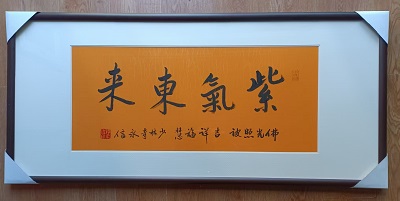 紫氣東来
佛光照被 吉祥福慧 少林寺永信